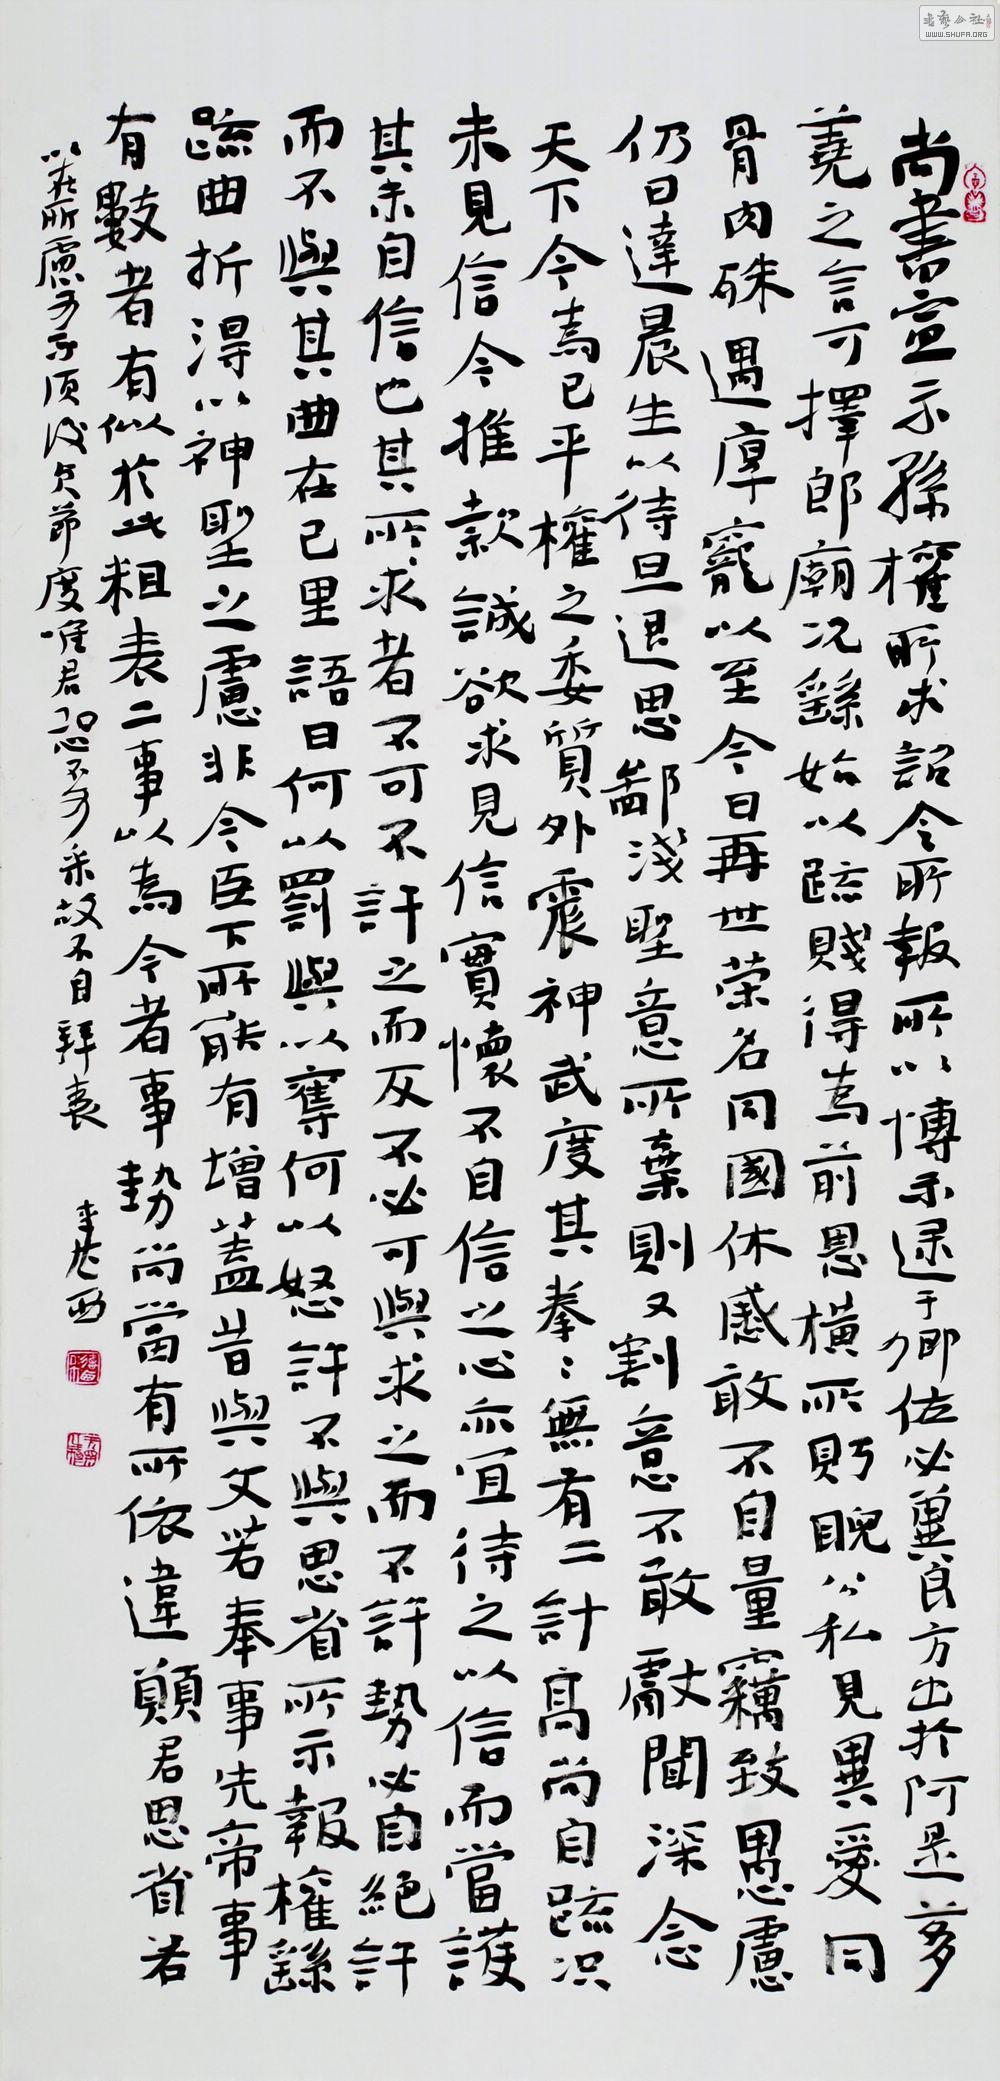 尚書宣示孫權所求詔令所報所以博示逮于卿佐必冀良方出於阿是芻
蕘之言可擇郎廟況繇始以疏賤得為前恩橫所盱睨公私見異愛同
骨肉殊遇厚寵以至今日再世榮名同國休慼敢不自量竊致愚慮
仍日達晨坐以待旦退思鄙淺聖意所棄則又割意不敢獻聞深念
天下今為已平權之委質外震神武度其拳〻無有二計高尚自疏況
未見信今推款誠欲求見信實懷不自信之心亦宜待之以信而當護
其未自信也其所求者不可不許之而反不必可與求之而不許勢必自絕許
而不與其曲在己里語曰何以罰與以奪何以怒許不與思省所示報權繇
疏曲折得以神聖之慮非今臣下所能有增蓋昔與文若奉事先帝事
有數者有似於此粗表二事以為今者事勢尚當有所依違願君思省若
以在所慮可不須復貟節度唯君恐不可采故不自拜表
書藝公社
WWW.SHUFA.ORG